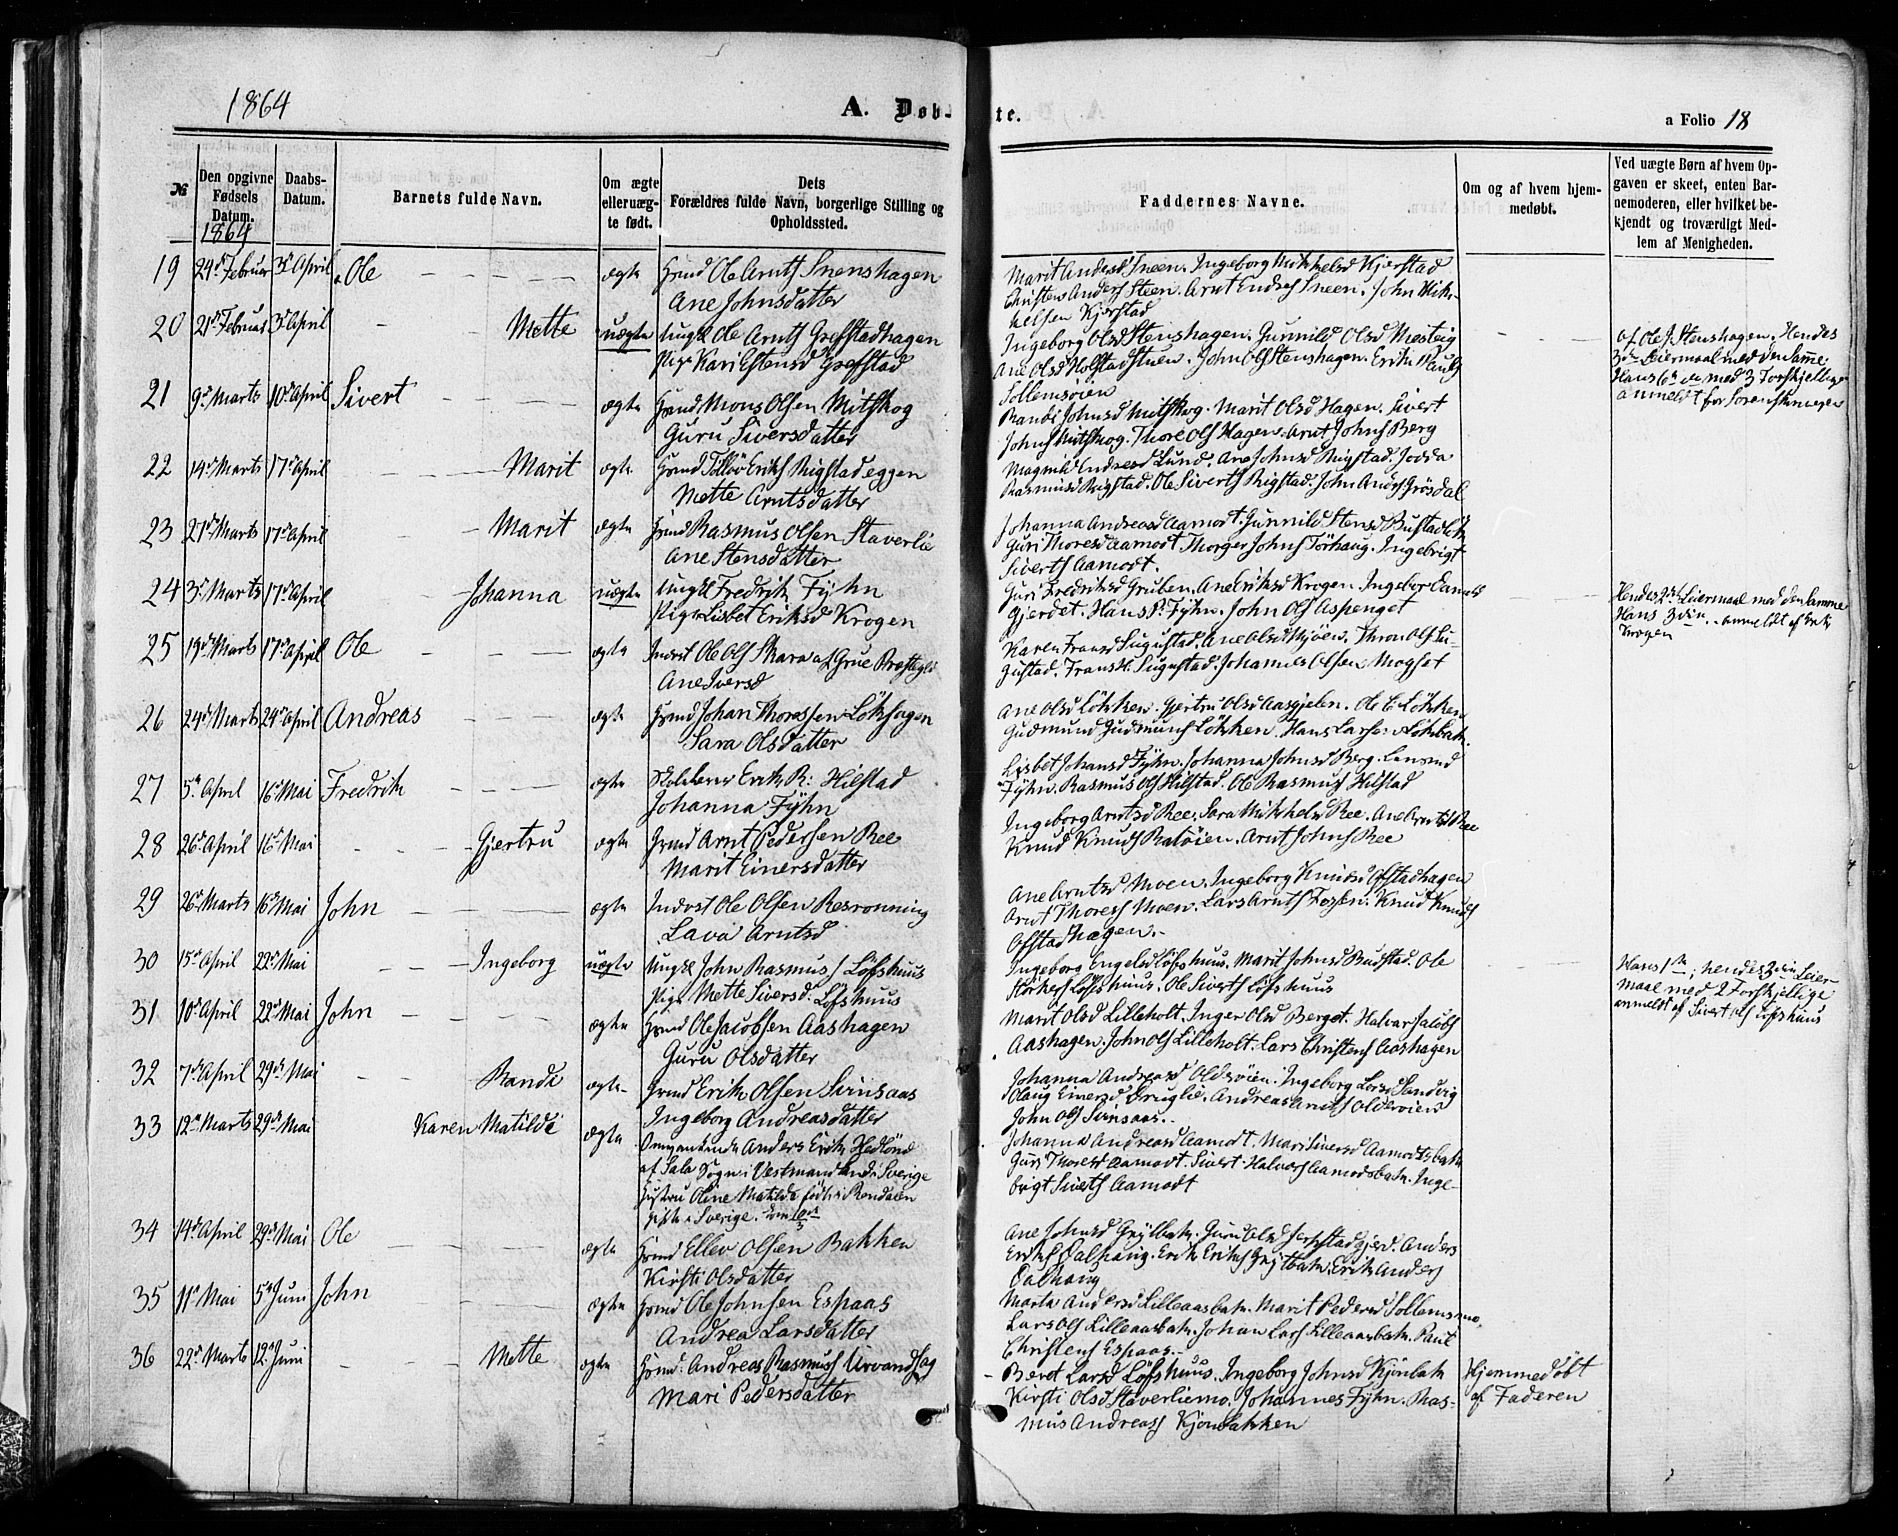 1864
A. Døb-
te.
a Folio 18
№
Den opgivne
Fødsels
Datum.
1864
Daabs-
Datum.
Barnets fulde Navn.
Om ægte
eller uæg-
te født.
Dets
Forældres fulde Navn, borgerlige Stilling og
Opholdssted.
Faddernes Navne.
Om og af hvem hjem-
medøbt.
Ved uægte Børn af hvem Op-
gaven er skeet, enten Bar-
nemoderen, eller hvilket be-
kjendt og troværdigt Med-
lem af Menigheden.
19 Februar 3d April Ole ægte Ole Arnts
Ane Johnsdatter
Marit Andersd Sneen. Ingeborg Mikkelsd Kjerstad
Christen Anders Steen. Arnt Endres Sneen. John Mik-
kelsen Kjerstad
20 21d Februar 3d April Mette uægte Ungk Ole Arnts Grefstadhagen
Pige Kari Estensd Grefstad
Ingeborg Olsd Stenshagen. Gunnild Olsd Mesteig
Ane Olsd Holstadstuen. John Ols Stenshagen. Erik Pauls
Sollemsøien
af Ole J. Stenshagen. Hendes
3die Leiermaal med den samme
Hans 6te med 3 Forskjellige
anmeldt for Sorenskriveren
21 9d Marts 10d April Sivert ægte Grmd Mons Olsen Mitskog
Guru Siversdatter
Randi Johnsd Mitskog. Marit Olsd Hagen. Sivert
Johns Mitskog. Thore Ols Hagen. Arnt Johns Berg
22 14d Marts 17d April Marit ægte Grmd Eriks Rigstadeggen
Mette Arntsdatter
Magnild Endresd Lund. Ane Johnsd Rigstad. Jodda
Rasmusd Rigstad. Ole Siverts Rigstad. John Anders Grøsdal
23 27d Marts 17d April Marit ægte Grmd Rasmus Olsen Staverlie
Ane Stensdatter
Johanna Andreasd Aamodt. Gunnild Stensd
Guri Thoresd Aamodt. Thorger Johns Tørhaug. Ingebrigt
Siverts Aamodt.
24 3d Marts 17d April Johanna uægte Ungk Fredrik Fÿhn
Pige Lisbet Eriksd Krogen
Guri Fredriksd Gruben. Ane Eriksd Krogen. Ingebor
Gjerdet. Hans P. Fÿhn. John Ols Aspenget
Hendes 2det Leiermaal med den Samme
Hans 3die anmeldt af Erik
Krogen
25 19d Marts 17d April Ole ægte Indrst Ole Ols Skara af Grue Præstegld
Ane Siversd
Karen Fransd Sugustad. Ane Olsd Thron Ols Su-
gustad. Frans H. Sugustad. Johannes Olsen Mogset
26 24d Marts 24d April Andreas ægte Grmd Johan Thoressen Løkhagen
Sara Olsdatter
Ane Olsd Løkken. Gjertru Olsd Aasgjelen. Ole E Løkken
Gudmund Gudmunds Løkken. Hans Larsen Løkbak.
27 5d April 16d Mai Fredrik ægte Skolelærer Erik R. Hilstad
Johanna Fÿhn
Lisbet Johansd Fÿhn. Johanna Johnsd Berg.
Fÿhn. Rasmus Ols Hilstad. Ole Rasmuss Hilstad
28 26d April 16d Mai Gjertru ægte Grmd Arnt Pedersen Ree
Marit Einersdatter
Ingeborg Arntsd Ree. Sara Mikkelsd Ree. Ane Arntsd Ree
Knud Knuds Ratøien. Arnt Johns Ree
29 26d Marts 16d Mai John ægte Indrst Ole Olsen Resrønning
Lava Arntsd
Ane Arntsd Moen. Ingeborg Knudsd Ofstadhagen
Arnt Thoress Moen. Lars Arnts Fossen. Knud Knuds
Ofstadhagen.
30 15d April 22d Mai Ingeborg uægte Ungk John Rasmuss Løfshuus
Pige Mette Siversd: Løfshuus
Ingeborg Engelsd Løfshuus. Marit Johnsd Budstad. Ole
Størkers Løfshuus. Ole Siverts Løfshuus
Hans 1ste; hendes 2den Leier-
maal med 2 Forskjellige
anmeldt af Sivert Ols Løfshuus
31 10d April 22d Mai John ægte Grmd Ole Jacobsen Aashagen
Guru Olsdatter
Marit Olsd Lilleholt. Inger Olsd Berget. Halvar Jacobs
Aashagen. John Ols Lilleholt. Lars Christens Aashagen
32 7d April 29d Mai Randi ægte Grmd Erik Olsen Svinsaas
Ingeborg Andreasdatter
Johanna Andreasd Oldervien. Ingeborg Larsd Sandvig
Olaug Einersd Druglie. Andreas Arnts Oldervien
John Ols Svinsaas.
33 12d Marts 29d Mai Karen Matilde ægte Omvankende Anders Erik Hedlönd
af Sala Sogn i Vestmanland i Sverige
Hustru Oline Matilde født i Rendalen
gifte i Sverige.
Johanna Andreasd Aamodt. Mari Siversd Aamodtsbak
Guri Thoresd Aamodt. Sivert Halvors Aamodtsbak. Inge-
brigt Siverts Aamodt
34 14d April 29d Mai Ole ægte Grmd Ellev Olsen Bakken
Kirsti Olsdatter
Ane Johnsd Grÿtbak. Guru Olsd Anders
Eriks Dalhaug. Erik Eriks Grÿtbak. Erik Anders
Dalhaug
35 11d Mai 5d Juni John ægte Grmd Ole Johnsen Espaas
Andrea Larsdatter
Marta Andersd Lilleaasbak. Marit Pedersd Sollemsmo.
Lars Ols Lilleaasbak. Johan Lars Lilleaasbak. Paul
Christens Espaas.
36 22d Marts 12d Juni Mette ægte Grmd: Andreas Rasmuss Urvandhag
Mari Pedersdatter
Beret Larsd Løfshuus. Ingeborg Johnsd Kjønbak
Kirsti Olsd Staverliemo. Johannes Fÿhn. Ras-
mus Andreass Kjønbakken
Hjemmedøbt
af Faderen